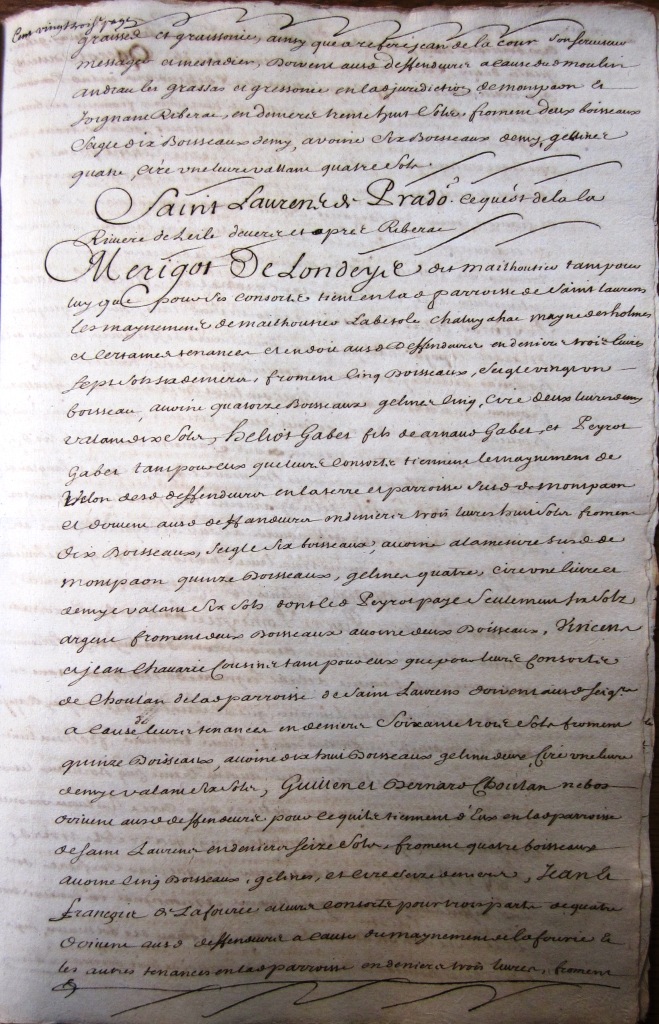 Cent vingt trois.e page
graisse et graissonie, ainsy que a refere jean de la cour son serviteur
messager et mestadier, doivent aud s.r deffendeur a cause du moulin
andrau les grassas et gressonie en lad juridiction de monpaon et
joignant Riberac, en deniers trente huit sols froment deux boisseaux
seigle dix boisseaux demy, avoine six boisseaux demy, gelines
quatre, cire une livre vallant quatre sols.
Saint Laurens de Prado. ce qu'est dela la
Riviere de Leile devers et apres Riberac
Merigot De Londeyx dit mailhoutier tam pour
luy que pour ses consorts tient en lad parroisse de saint laurens
les maynement de mailhoutier Labesole chaluyahac mayne desholmes
et certaines tenances et en doit aud s.r Deffendeur en deniers trois livres
sept sols six deniers, froment cinq boisseaux, seigle vingt un
boisseau, avoine quatorze boisseaux gelines cinq, cire deux livres demy
valant dix sols, heliot Gabet fils de arnaud Gabet, et Peyrot
Gabet tam pour eux que leurs consorts tiennent le maynement de
Velon dud s.r deffendeur en la terre et parroisse susd de monpaon
et doivent aud s.r deffandeur en deniers trois livres huit sols froment
dix boisseaux, seigle six boisseaux, avoine a la mesure susd de
monpaon quinze boisseaux, gelines quatre, cire une livre et
demye valant six sols dont led Peyrot paye seulement six sols
argent froment deux boisseaux avoine deux boisseaux, Vincens
et jean Chavarie Cousins tam pour eux que pour leurs consorts
de Choulan de lad parroisse de Saint Laurens doivent aud seig.r
a cause de leurs tenances en deniers soixante trois sols froment
quinze boisseaux, avoine dix huit boisseaux gelines deux, cire une livre
demye valant six sols, Guillen et Bernard Choulan nebos
doivent aud s.r deffendeur pour ce quils tiennent d'Eux en lad parroisse
de saint Laurens en deniers seize sols, froment quatre boisseaux
avoine cinq boisseaux, gelines, et cire seize deniers, Jean et
François de Lafourie et leurs consorts pour trois parts de quatre
doivent aud s.r deffendeur a cause du maynement de lafourie et
les autres tenances en lad parroisse en deniers trois livres, froment